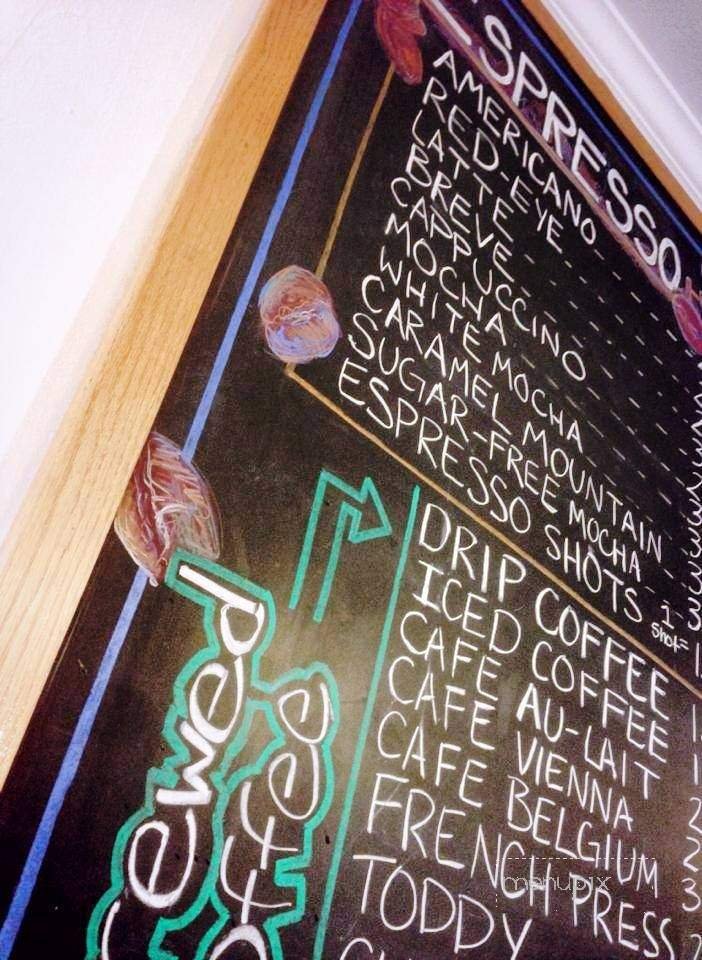 ESPRESSO
AMERICANO
RED-EYE
LATTE
BREVE
CAPPUCCINO
MOCHA
WHITE MOCHA
CARAMEL MOUNTAIN
SUGAR-FREE MOCHA
ESPRESSO SHOTS 1 shot=
DRIP COFFEE
ICED COFFEE
CAFE AU-LAIT
CAFE VIENNA
CAFE BELGIUM
FRENCH PRESS
TODDY
menupix